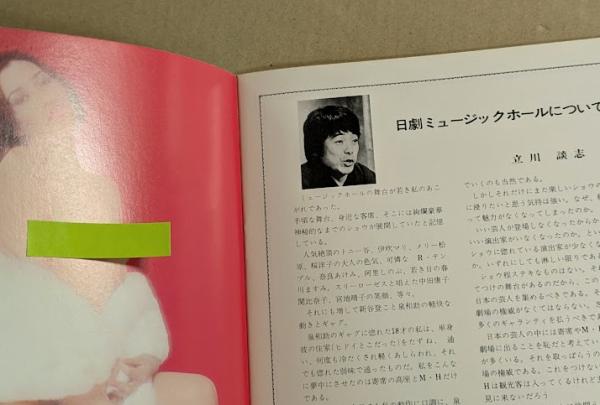 日劇ミュージックホールについて
立川談志
ミュージックホールの舞台が若き私のあこ
がれであった。
手頃な舞台、身近な客席、そこには絢爛豪華
神秘的なまでのショウが展開していたと記憶
している。
人気絶頂のトニー谷、伊吹マリ、メリー松
原、桜洋子の大人の色気、可憐な R・テン
プル、奈良あけみ、阿里しのぶ、若き日の春
川ますみ、スリーローゼスと唄えた中田康子
関比奈子、宮地晴子の笑顔、等々。
それにも増して新谷登こと泉和助の軽快な
動きとギャグ。
泉和助のギャグに惚れた18才の私は、単身
彼の住家(ヒドイとこだった)をたずね、通
い、何度も冷たくされ軽くあしらわれ、それ
でも惚れた弱味で通ったものだ。私をこんな
に夢中にさせたのは寄席の高座とM・Hだけ
である。
ていくのも当然である。
しかしそれだけにまた楽しいショウの
に浸りたいと思う気持は強い。なぜ、
って魅力がなくなってしまったのか。
いい芸人が登場しなくなったから
いい演出家がいなくなったのか。とい
ショウに惚れている演出家が少なくな
か。いずれにしても淋しい限りである
ショウ程ステキなものはない。それ
てつけの舞台があるのだから、この
日本の芸人を集めるべきである。そ
劇場の権威がなくてはならない。
多くのギャランティを払うべきであ
日本の芸人の中には寄席やM・H
劇場に出ることを恥だと考えてい
が多くいる。それを取っぱらうの
場の権威である。これをつけない
Hは観光客は入ってくるけれど
見に来ないだろう